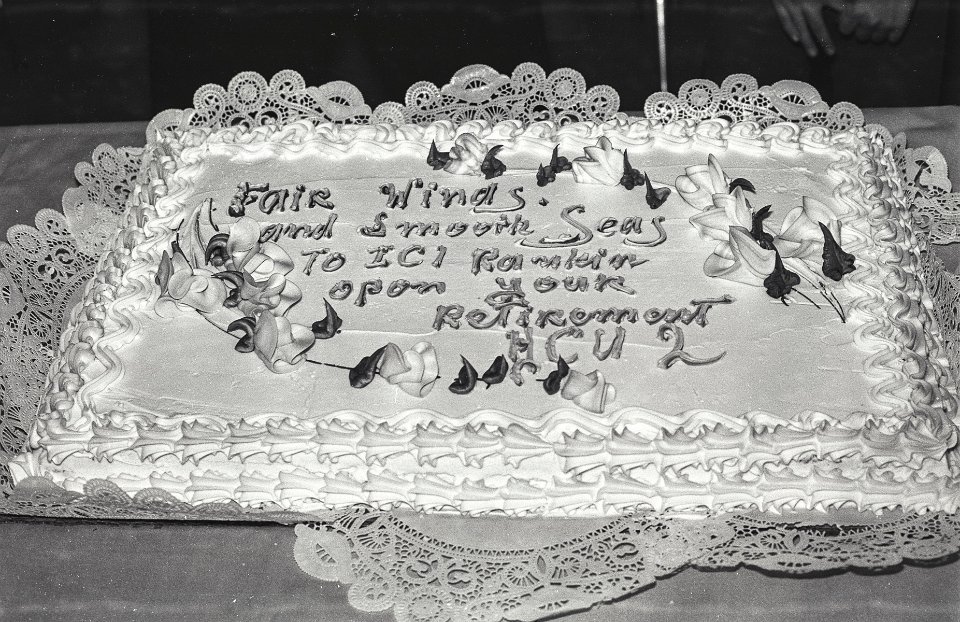 Fair Winds.
and Smooth Seas
To IC1 Rankin
opon your
Retirement
HCU 2